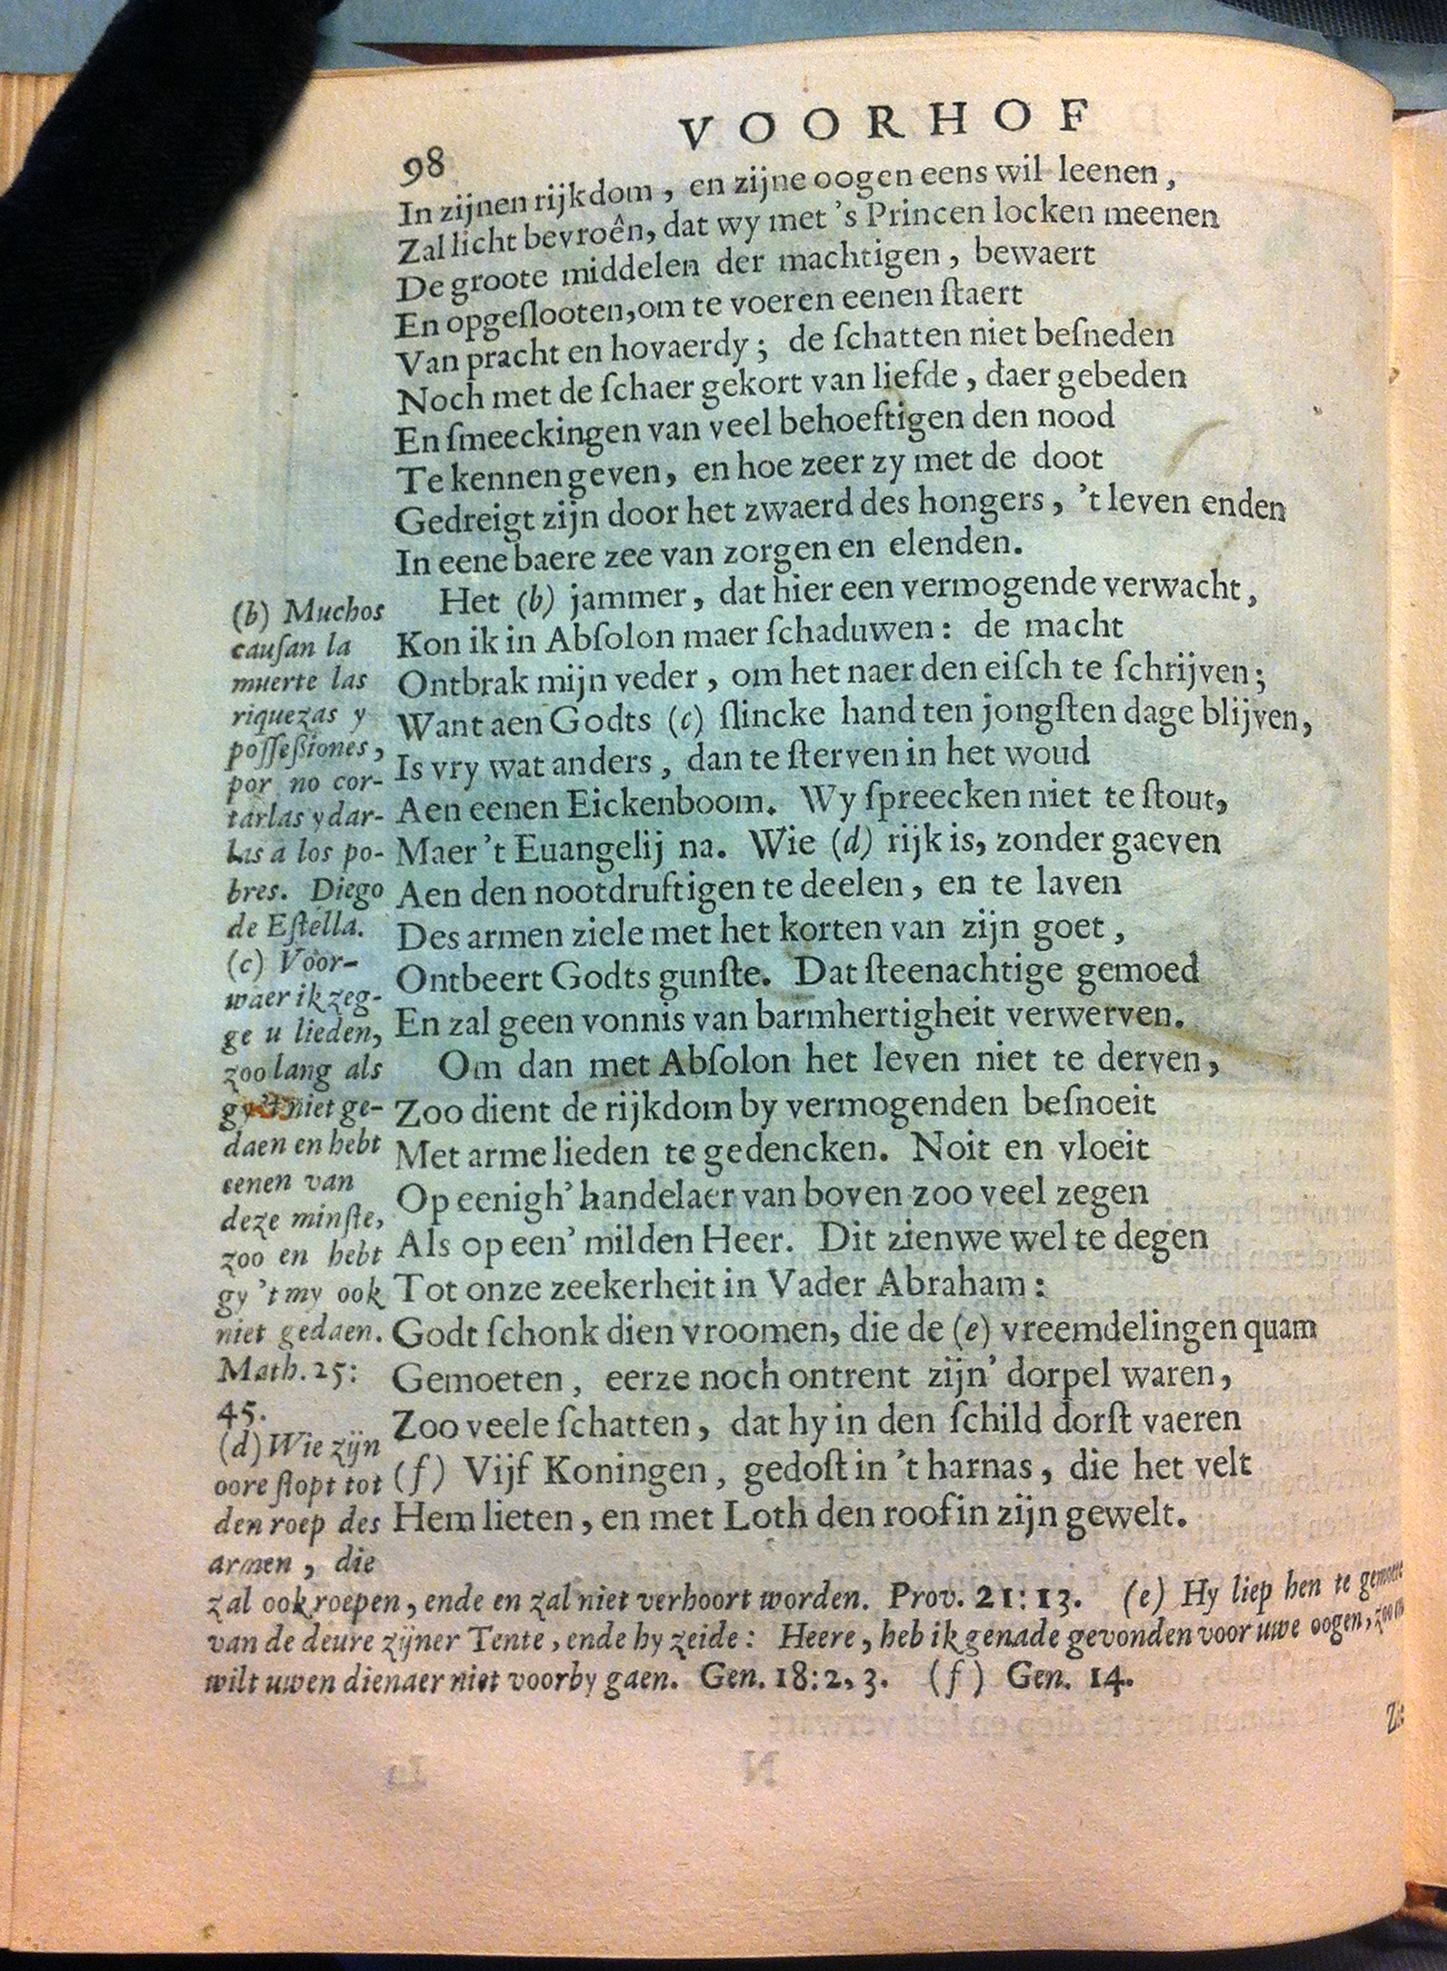 VOORHOF
98
In zijnen rijkdom, en zijne oogen eens wil leenen,
Zal licht bevroên, dat wy met 's Princen locken meenen
De groote middelen der machtigen, bewaert
En opgeſlooten, om te voeren eenen ſtaert
Van pracht en hovaerdy; de ſchatten niet beſneden
Noch met de ſchaer gekort van liefde, daer gebeden
En ſmeeckingen van veel behoeftigen den nood
Te kennen geven, en hoe zeer zy met de doot
Gedreigt zijn door het zwaerd des hongers, 't leven enden
In eene baere zee van zorgen en elenden.
Het (b) jammer, dat hier een vermogende verwacht,
Kon ik in Abſolon maer ſchaduwen: de macht
Ontbrak mijn veder, om het naer den eiſch te ſchrijven;
Want aen Godts (c) ſlincke hand ten jongſten dage blijven,
Is vry wat anders, dan te ſterven in het woud
Aen eenen Eickenboom. Wy ſpreecken niet te ſtout,
Maer 't Euangelij na. Wie (d) rijk is, zonder gaeven
Aen den nootdruftigen te deelen, en te laven
Des armen ziele met het korten van zijn goet,
Ontbeert Godts gunſte. Dat ſteenachtige gemoed
En zal geen vonnis van barmhertigheit verwerven.
Om dan met Abſolon het leven niet te derven,
Zoo dient de rijkdom by vermogenden beſnoeit
Met arme lieden te gedencken. Noit en vloeit
Op eenigh' handelaer van boven zoo veel zegen
Als op een' milden Heer. Dit zien we wel te degen
Tot onze zeekerheit in Vader Abraham:
Godt ſchonk dien vroomen, die de (e) vreemdelingen quam
Gemoeten, eerze noch ontrent zijn' dorpel waren,
Zoo veele ſchatten, dat hy in den ſchild dorſt vaeren
(f) Vijf Koningen, gedoſt in 't harnas, die het velt
Hem lieten, en met Loth den roof in zijn gewelt.
(b) Muchos
cauſan la
muerte las
riquezas y
poſſeßiones,
por no cor-
tarlas y dar-
las a los po-
bres. Diego
de Eſtella.
(c) Voor-
waer ik zeg-
ge u lieden,
zoo lang als
niet ge-
daen en hebt
eenen van
deze minſte,
zoo en hebt
gy 't my ook
niet gedaen.
Math. 25:
45.
(d) Wie zijn
oore ſtopt tot
den roep des
armen, die
zal ook roepen, ende en zal niet verhoort worden. Prov. 21:13. (e) Hy liep hen te gemoete
van de deure zijner Tente, ende hy zeide: Heere, heb ik genade gevonden voor uwe oogen,
wilt uwen dienaer niet voorby gaen. Gen. 18:2,3. (f) Gen. 14.